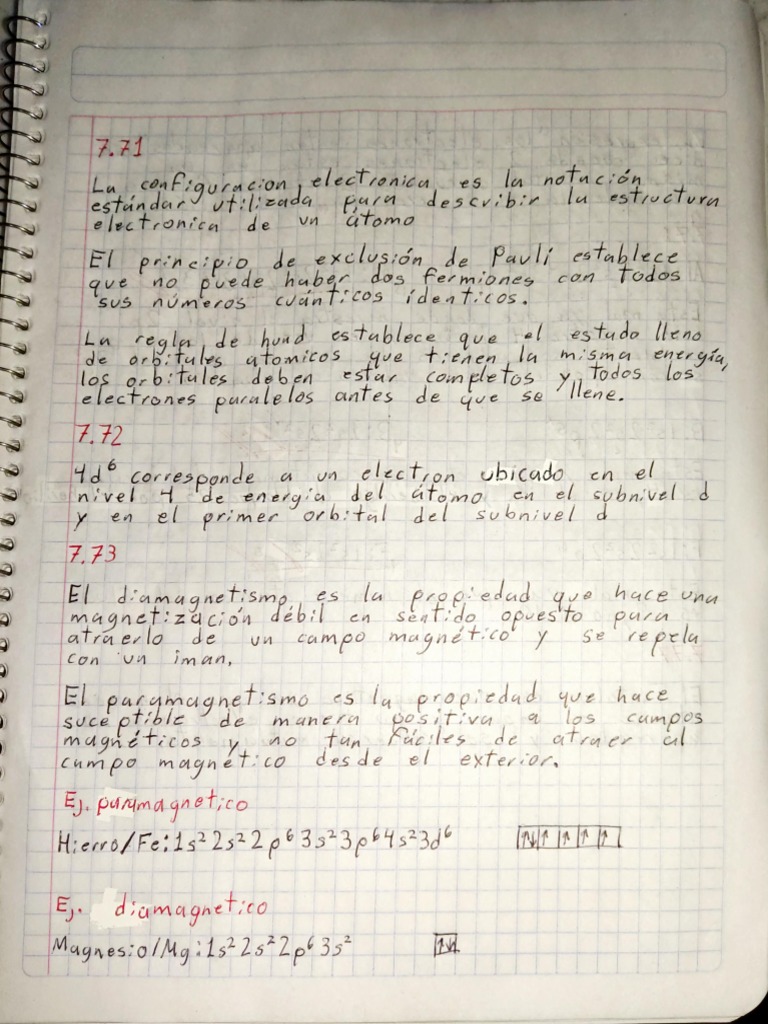 7.71
La configuracion electronica es la notación
estándar utilizada para describir la estructura
electronica de un átomo
El principio de exclusión de Pauli establece
que no puede haber dos fermiones con todos
sus números cuánticos identicos.
La regla de hund establece que el estado lleno
de orbitales atomicos que tienen la misma energía,
los orbitales deben estar completos y todos los
electrones paralelos antes de que se llene.
7.72
4d⁶ corresponde a un electron ubicado en el
nivel 4 de energía del átomo en el subnivel d
y en el primer orbital del subnivel d
7.73
El diamagnetismo es la propiedad que hace una
magnetización débil en sentido opuesto para
atraerlo de un campo magnético y se repela
con un iman.
El paramagnetismo es la propiedad que hace
suceptible de manera positiva a los campos
magnéticos y no tan fáciles de atraer al
campo magnético desde el exterior.
Ej. paramagnetico
Hierro/Fe: 1s² 2s² 2p⁶ 3s² 3p⁶ 4s² 3d⁶ ↑↓ ↑ ↑ ↑ ↑
Ej. diamagnetico
Magnesio/Mg: 1s² 2s² 2p⁶ 3s² ↑↓